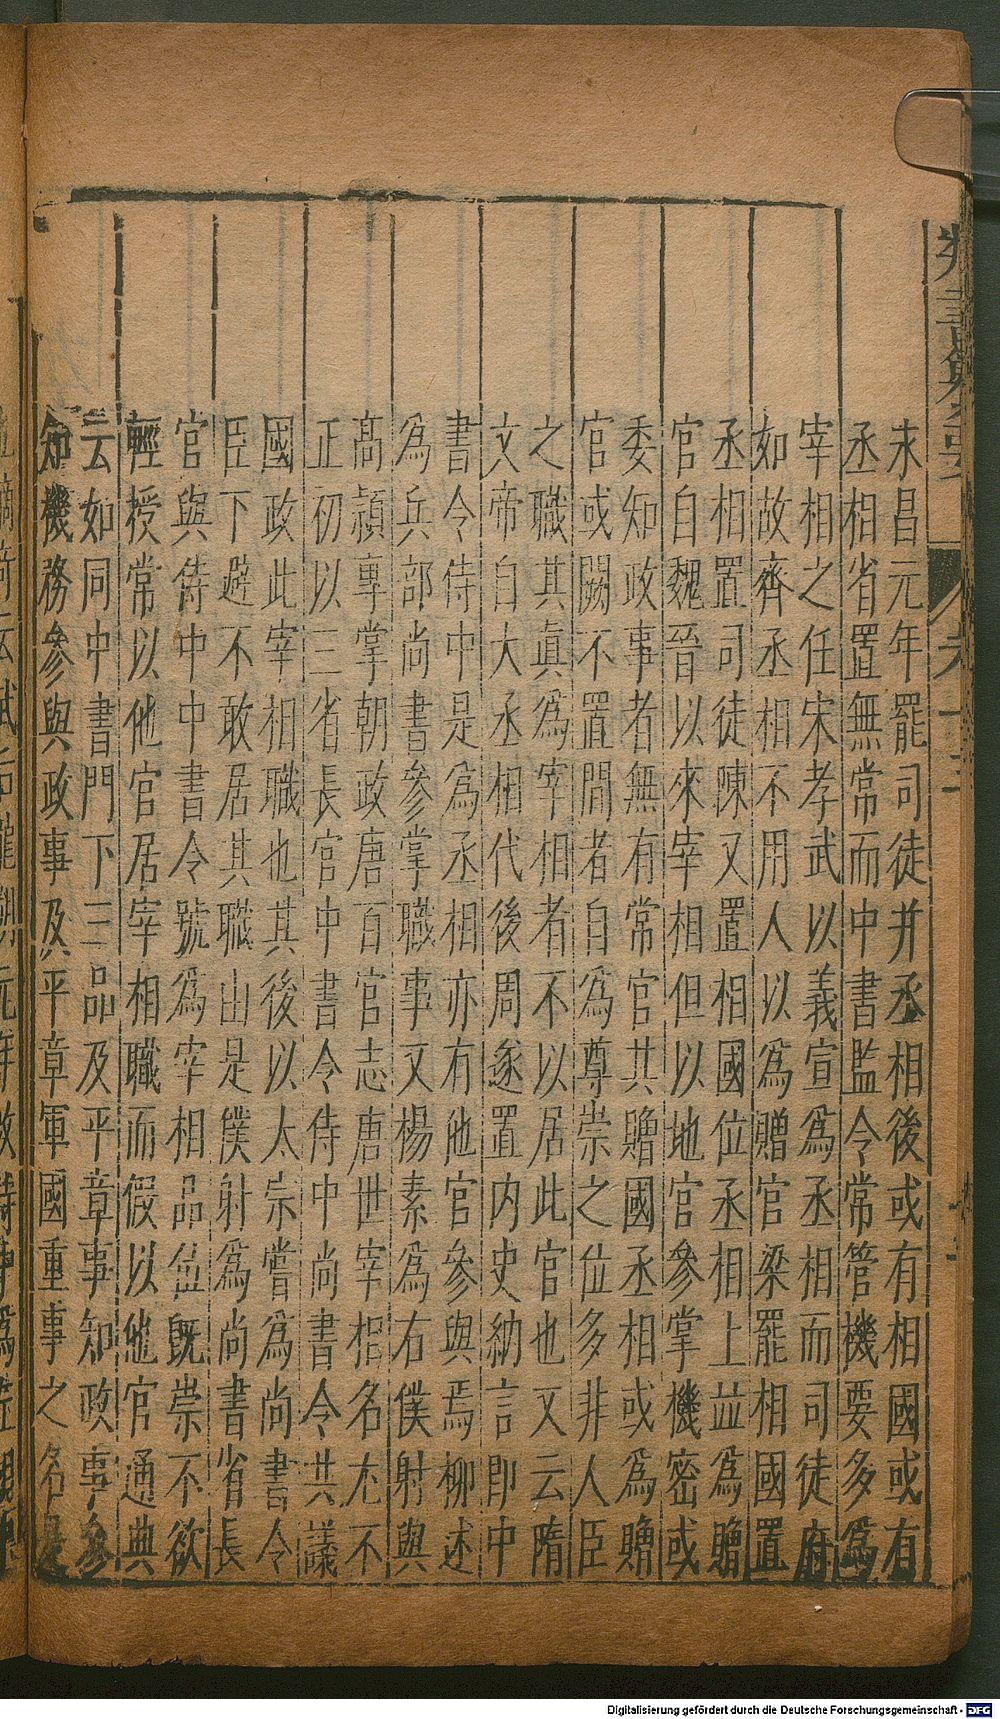 永昌元年罷司徒并丞相後或有相國或有
丞相省置無常而中書監令常管機要多爲
宰相之任宋孝武以義宣爲丞相而司徒府
如故齊丞相不用人以爲贈官梁罷相國置
丞相置司徒陳又置相國位丞相上並爲贈
官自魏晉以來宰相但以地官參掌機密或
委知政事者無有常官共贈國丞相或爲贈
官或闕不置間者自爲尊崇之位多非人臣
之職其眞爲宰相者不以居此官也又云隋
文帝自大丞相代後周遂置内史納言即中
書令侍中是爲丞相亦有他官參與焉柳述
爲兵部尚書參掌職事又楊素爲右僕射與
髙頴專掌朝政唐百官志唐世宰相名尤不
正初以三省長官中書令侍中尚書令共議
國政此宰相職也其後以太宗嘗爲尚書令
臣下避不敢居其職由是僕射爲尚書省長
官與侍中中書令號爲宰相品位既崇不欲
輕授常以他官居宰相職而假以他官通典
云如同中書門下三品及平章事知政事參
知機務參與政事及平章軍國重事之名是
Digitalisierung gefördert durch die Deutsche Forschungsgemeinschaft - DFG